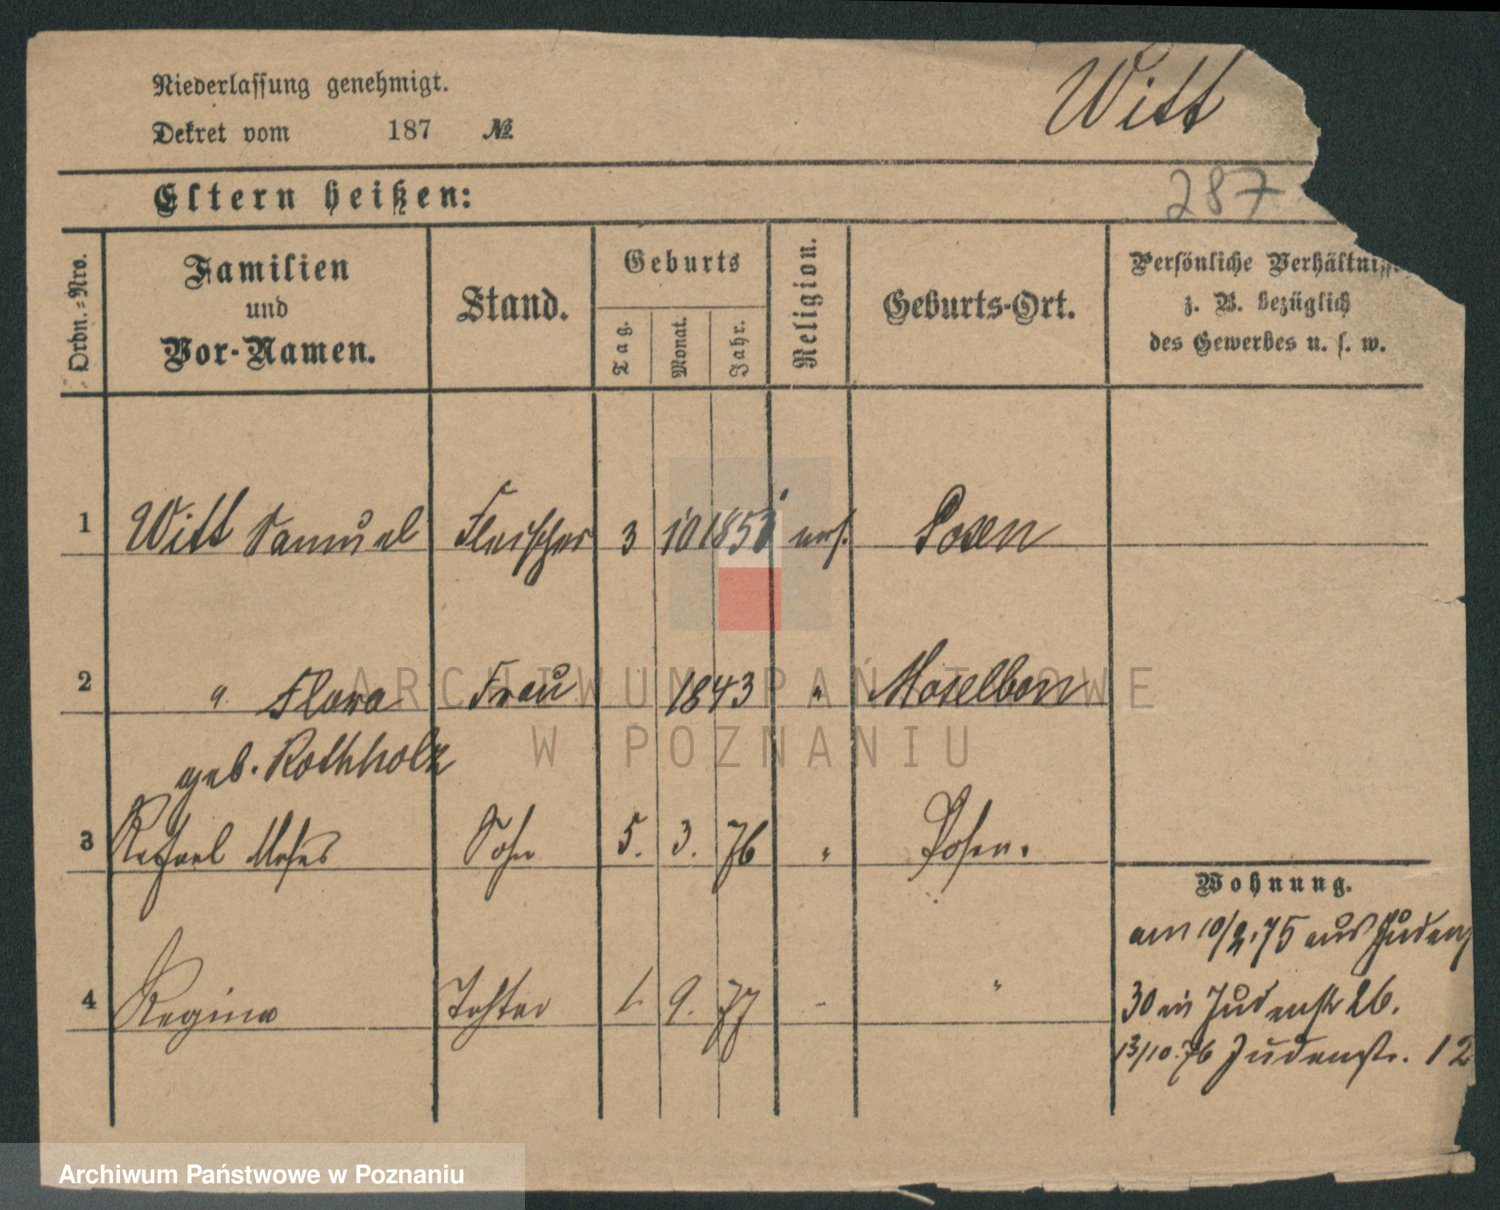 Niederlassung genehmigt.
Witt
Dekret vom 187 №
Eltern heißen:
287
Ordn.=Nro.
Familien
und
Vor-Namen.
Stand.
Geburts
Tag.
Monat.
Jahr.
Religion.
Geburts-Ort.
Persönliche Verhältniss
z. B. bezüglich
des Gewerbes u. s. w.
1 Witt Samuel Fleischer 3 10 1851 mos. Posen
2 " Flora Frau 1843 "
geb. Rothholz
3 Moses Sohn 5. 3. 76 " Posen.
4 Regina Tochter 1. 9. 77 - "
Wohnung.
am 10/2.75 aus Judens
30 in Judenstr 26.
13/10.76 Judenstr. 12
ARCHIWUM PAŃSTWOWE
W POZNANIU
Archiwum Państwowe w Poznaniu